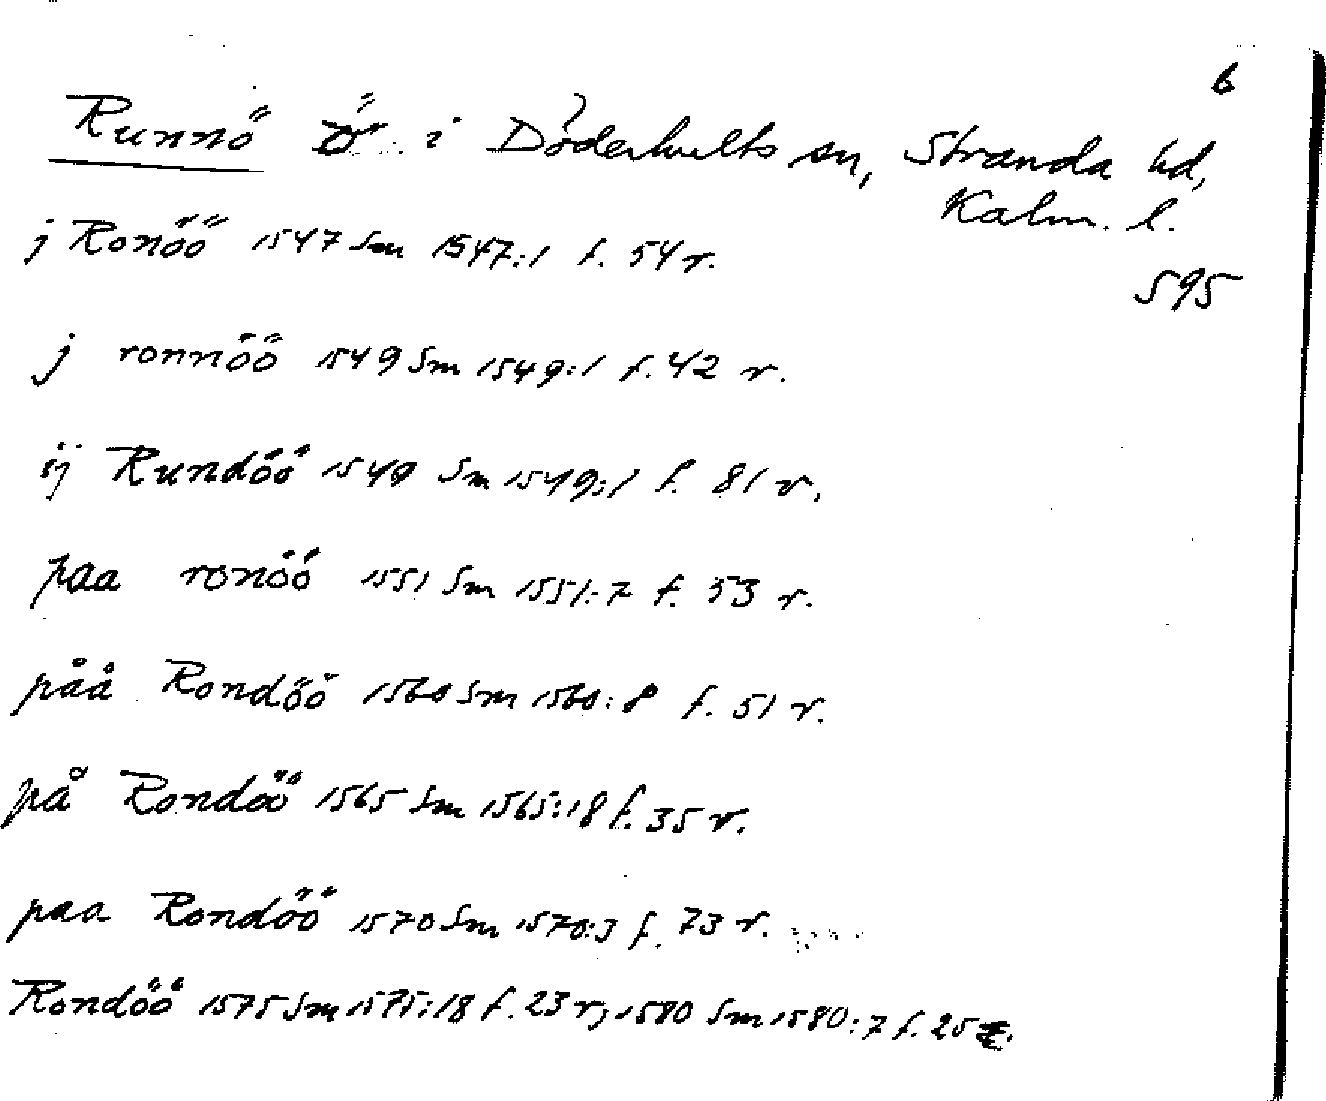 6
Runnö ö i Döderhults sn, Stranda hd,
Kalm. l.
j Ronöö 1547 Sm 1547:1 f. 54 r.
595
j ronnöö 1549 Sm 1549:1 f. 42 r.
ij Rundöö 1549 Sm 1549:1 f. 81 v.
paa ronöö 1551 Sm 1551:7 f. 53 r.
påå Rondöö 1560 Sm 1560:8 f. 51 r.
på Rondöö 1565 Sm 1565:18 f. 35 v.
paa Rondöö 1570 Sm 1570:3 f. 73 r.
Rondöö 1575 Sm 1575:18 f. 23 r; 1580 Sm 1580:7 f. 25